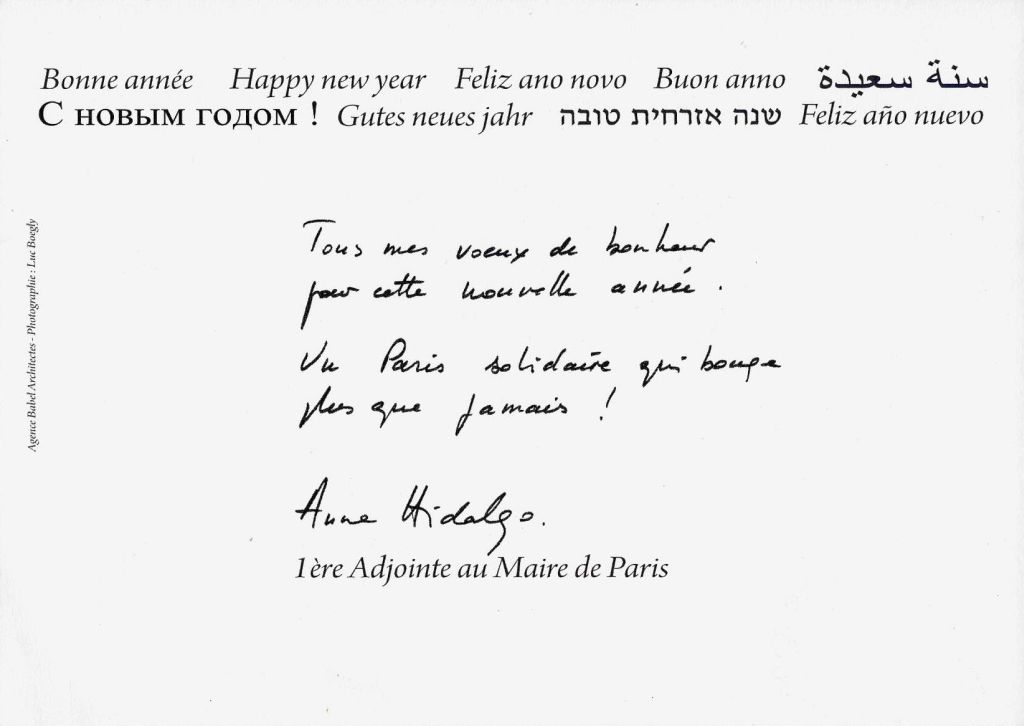 Bonne année Happy new year Feliz ano novo Buon anno سنة سعيدة
С новым годом ! Gutes neues jahr שנה אזרחית טובה Feliz año nuevo
Tous mes voeux de bonheur
pour cette nouvelle année.
Un Paris solidaire qui bouge
plus que jamais !
Anne Hidalgo.
1ère Adjointe au Maire de Paris
Agence Babel Architectes - Photographie : Luc Boegly